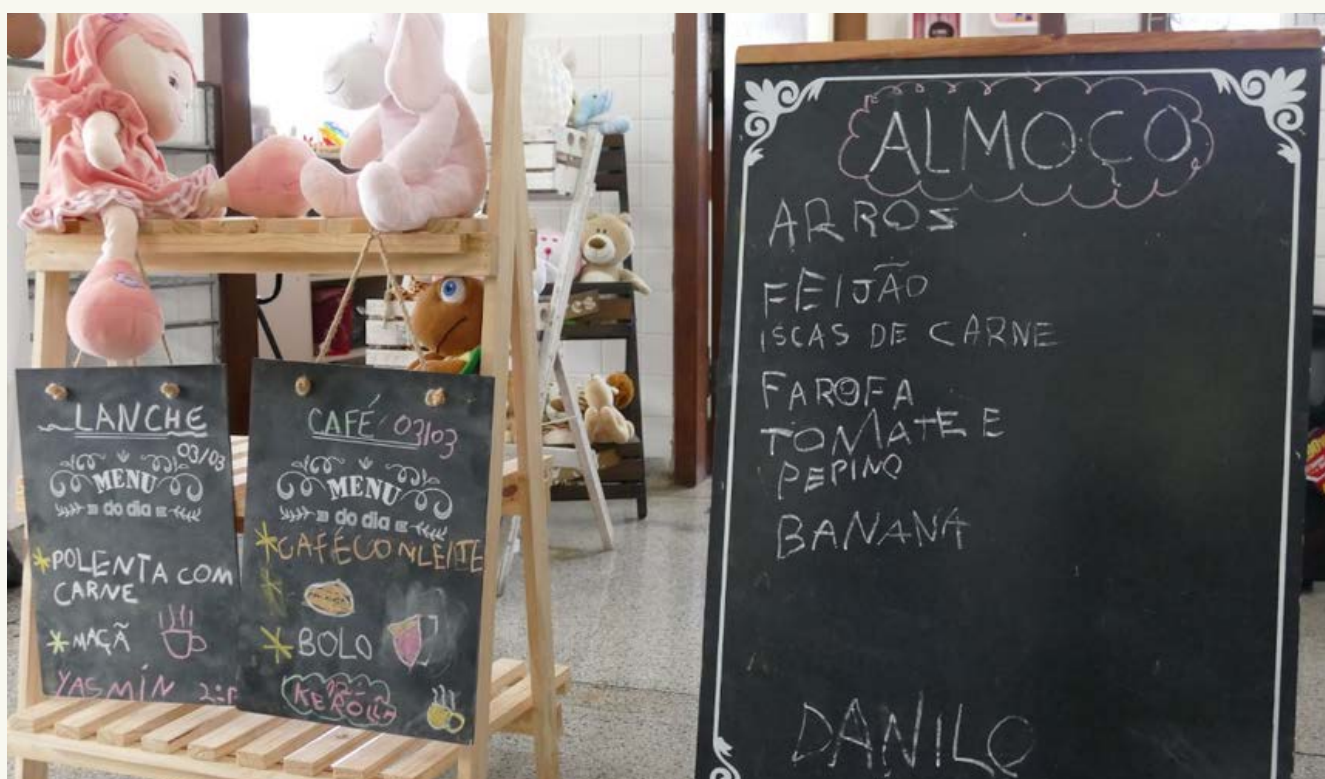 LANCHE
03/03
MENU
do dia
POLENTA COM
CARNE
MAÇÃ
YASMÍN
CAFÉ 03/03
MENU
do dia
CAFÉ CONLEITE
BOLO
ALMOÇO
ARROS
FEIJÃO
ISCAS DE CARNE
FAROFA
TOMATE E
PEPINO
BANANA
DANILO